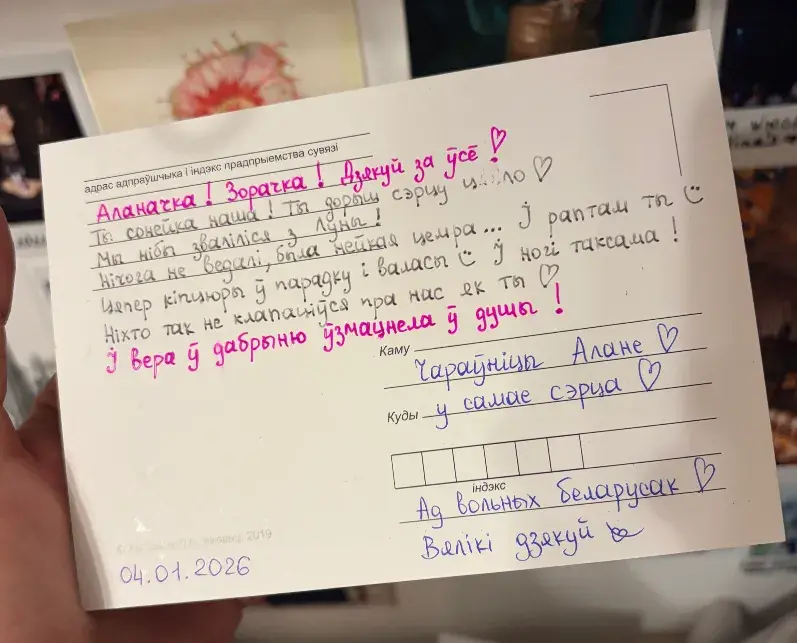 адрас адпраўшчыка і індэкс прадпрыемства сувязі
Аланачка! Зорачка! Дзякуй за ўсё! ♡
Ты сонейка наша! Ты дорыш сэрцу цяпло ♡
Мы нібы зваліліся з Луны!
Нічога не ведалі, была нейкая цемра... Ў раптам ты ☺
Цяпер кіпцюры ў парадку і валасы ☺ Ў ногі таксама!
Ніхто так не клапаціўся пра нас як ты ♡
Ў вера ў дабрыню ўзмацнела ў душы!
Каму
Чараўніцы Алане ♡
Куды у самае сэрца ♡
індэкс
Ад вольных беларусак ♡
Вялікі дзякуй
2019
04.01.2026